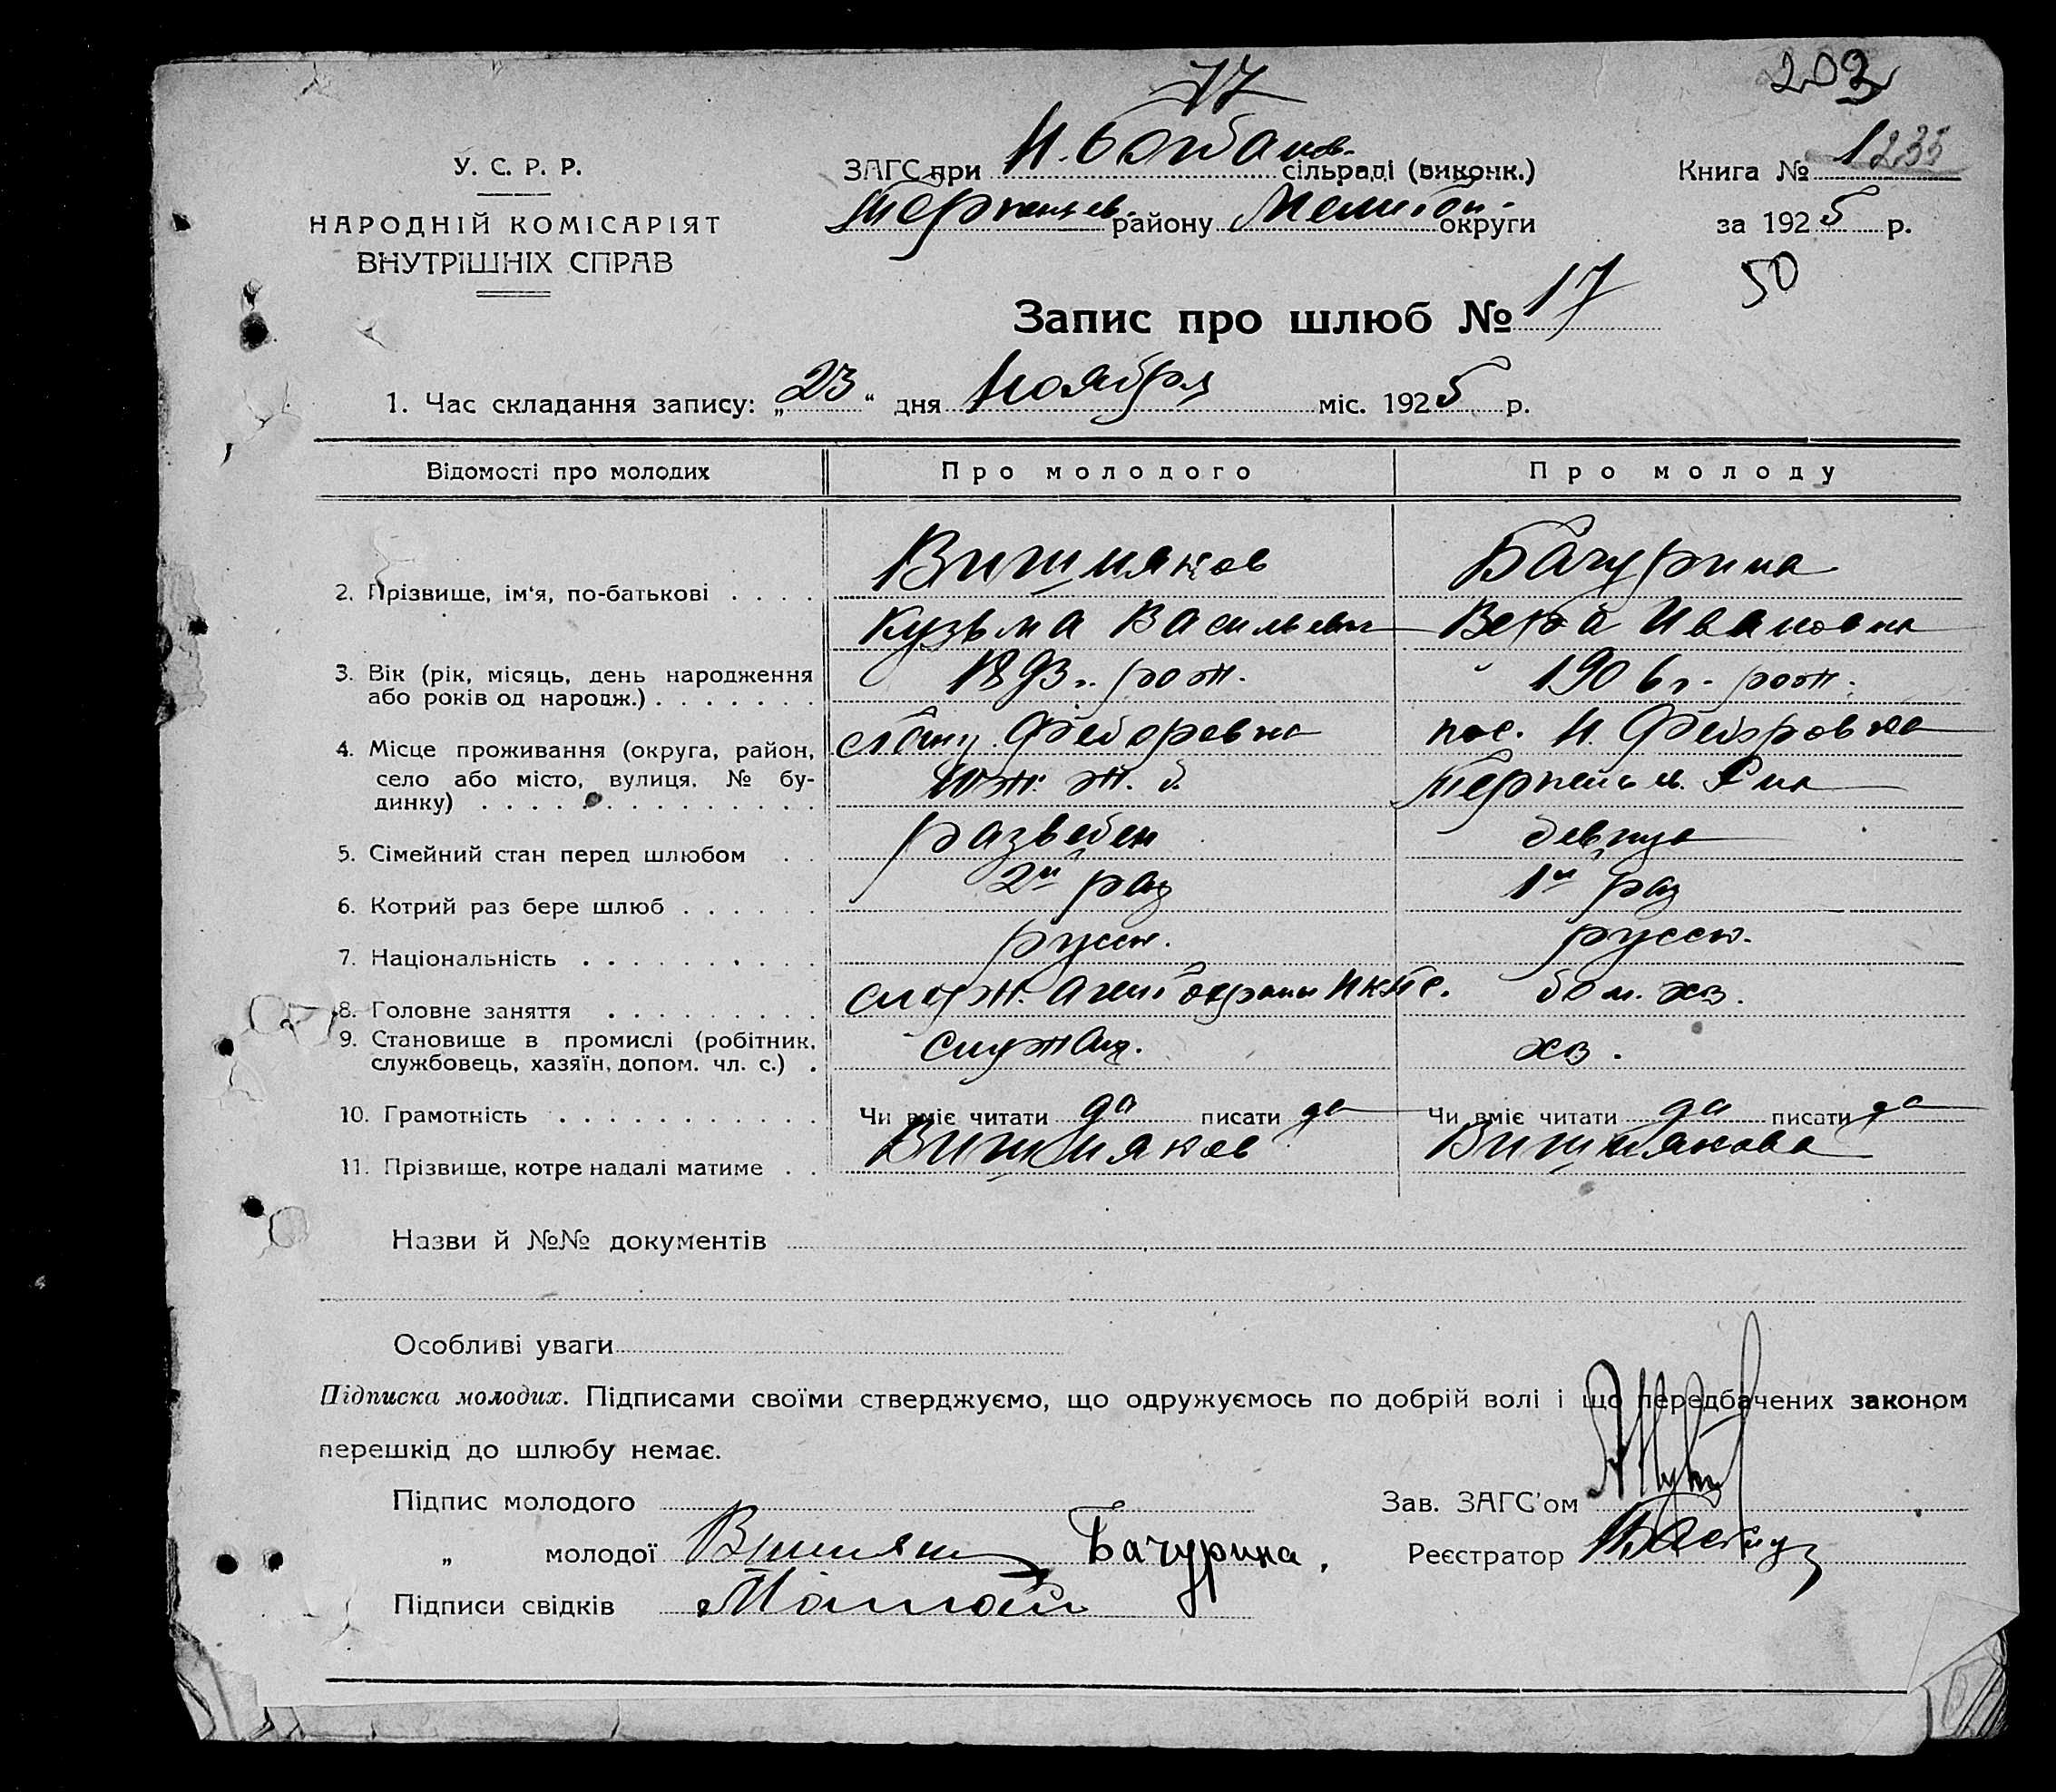 77
203
У. С. Р. Р.
НАРОДНІЙ КОМІСАРІЯТ
ВНУТРІШНІХ СПРАВ
ЗАГС при Н. Богданов. сільраді (виконк.)
району Мелитоп. округи
Книга № 1 235
за 1925 р.
50
Запис про шлюб № 17
1. Час складання запису: „23“ дня Ноября міс. 1925 р.
Відомості про молодих Про молодого Про молоду
2. Прізвище, ім'я, по-батькові . . . . Вишняков Бачурина
Кузьма Васильевич Вера Ивановна
3. Вік (рік, місяць, день народження або років од народж.) . . . . . . . 1893 г. рож. 1906 г. рож.
4. Місце проживання (округа, район, село або місто, вулиця, № будинку) . . . . . . . . . . . . . . Федоровка пос. Н. Федоровка
Юж. ж. д. р-на
5. Сімейний стан перед шлюбом . . разведен девица
6. Котрий раз бере шлюб . . . . . . 2й раз 1й раз
7. Національність . . . . . . . . . . русск. русск.
8. Головне заняття . . . . . . . . . агент охраны НКПС. дом. хоз.
9. Становище в промислі (робітник, службовець, хазяїн, допом. чл. с.) . служащ. хоз.
10. Грамотність . . . . . . . . . . . Чи вміє читати да писати да Чи вміє читати да писати да
11. Прізвище, котре надалі матиме . . Вишняков Вишнякова
Назви й №№ документів
Особливі уваги
Підписка молодих. Підписами своїми стверджуємо, що одружуємось по добрій волі і що передбачених законом
перешкід до шлюбу немає.
Підпис молодого
Зав. ЗАГС'ом
„ молодої Вишняков Бачурина,
Реєстратор
Підписи свідків